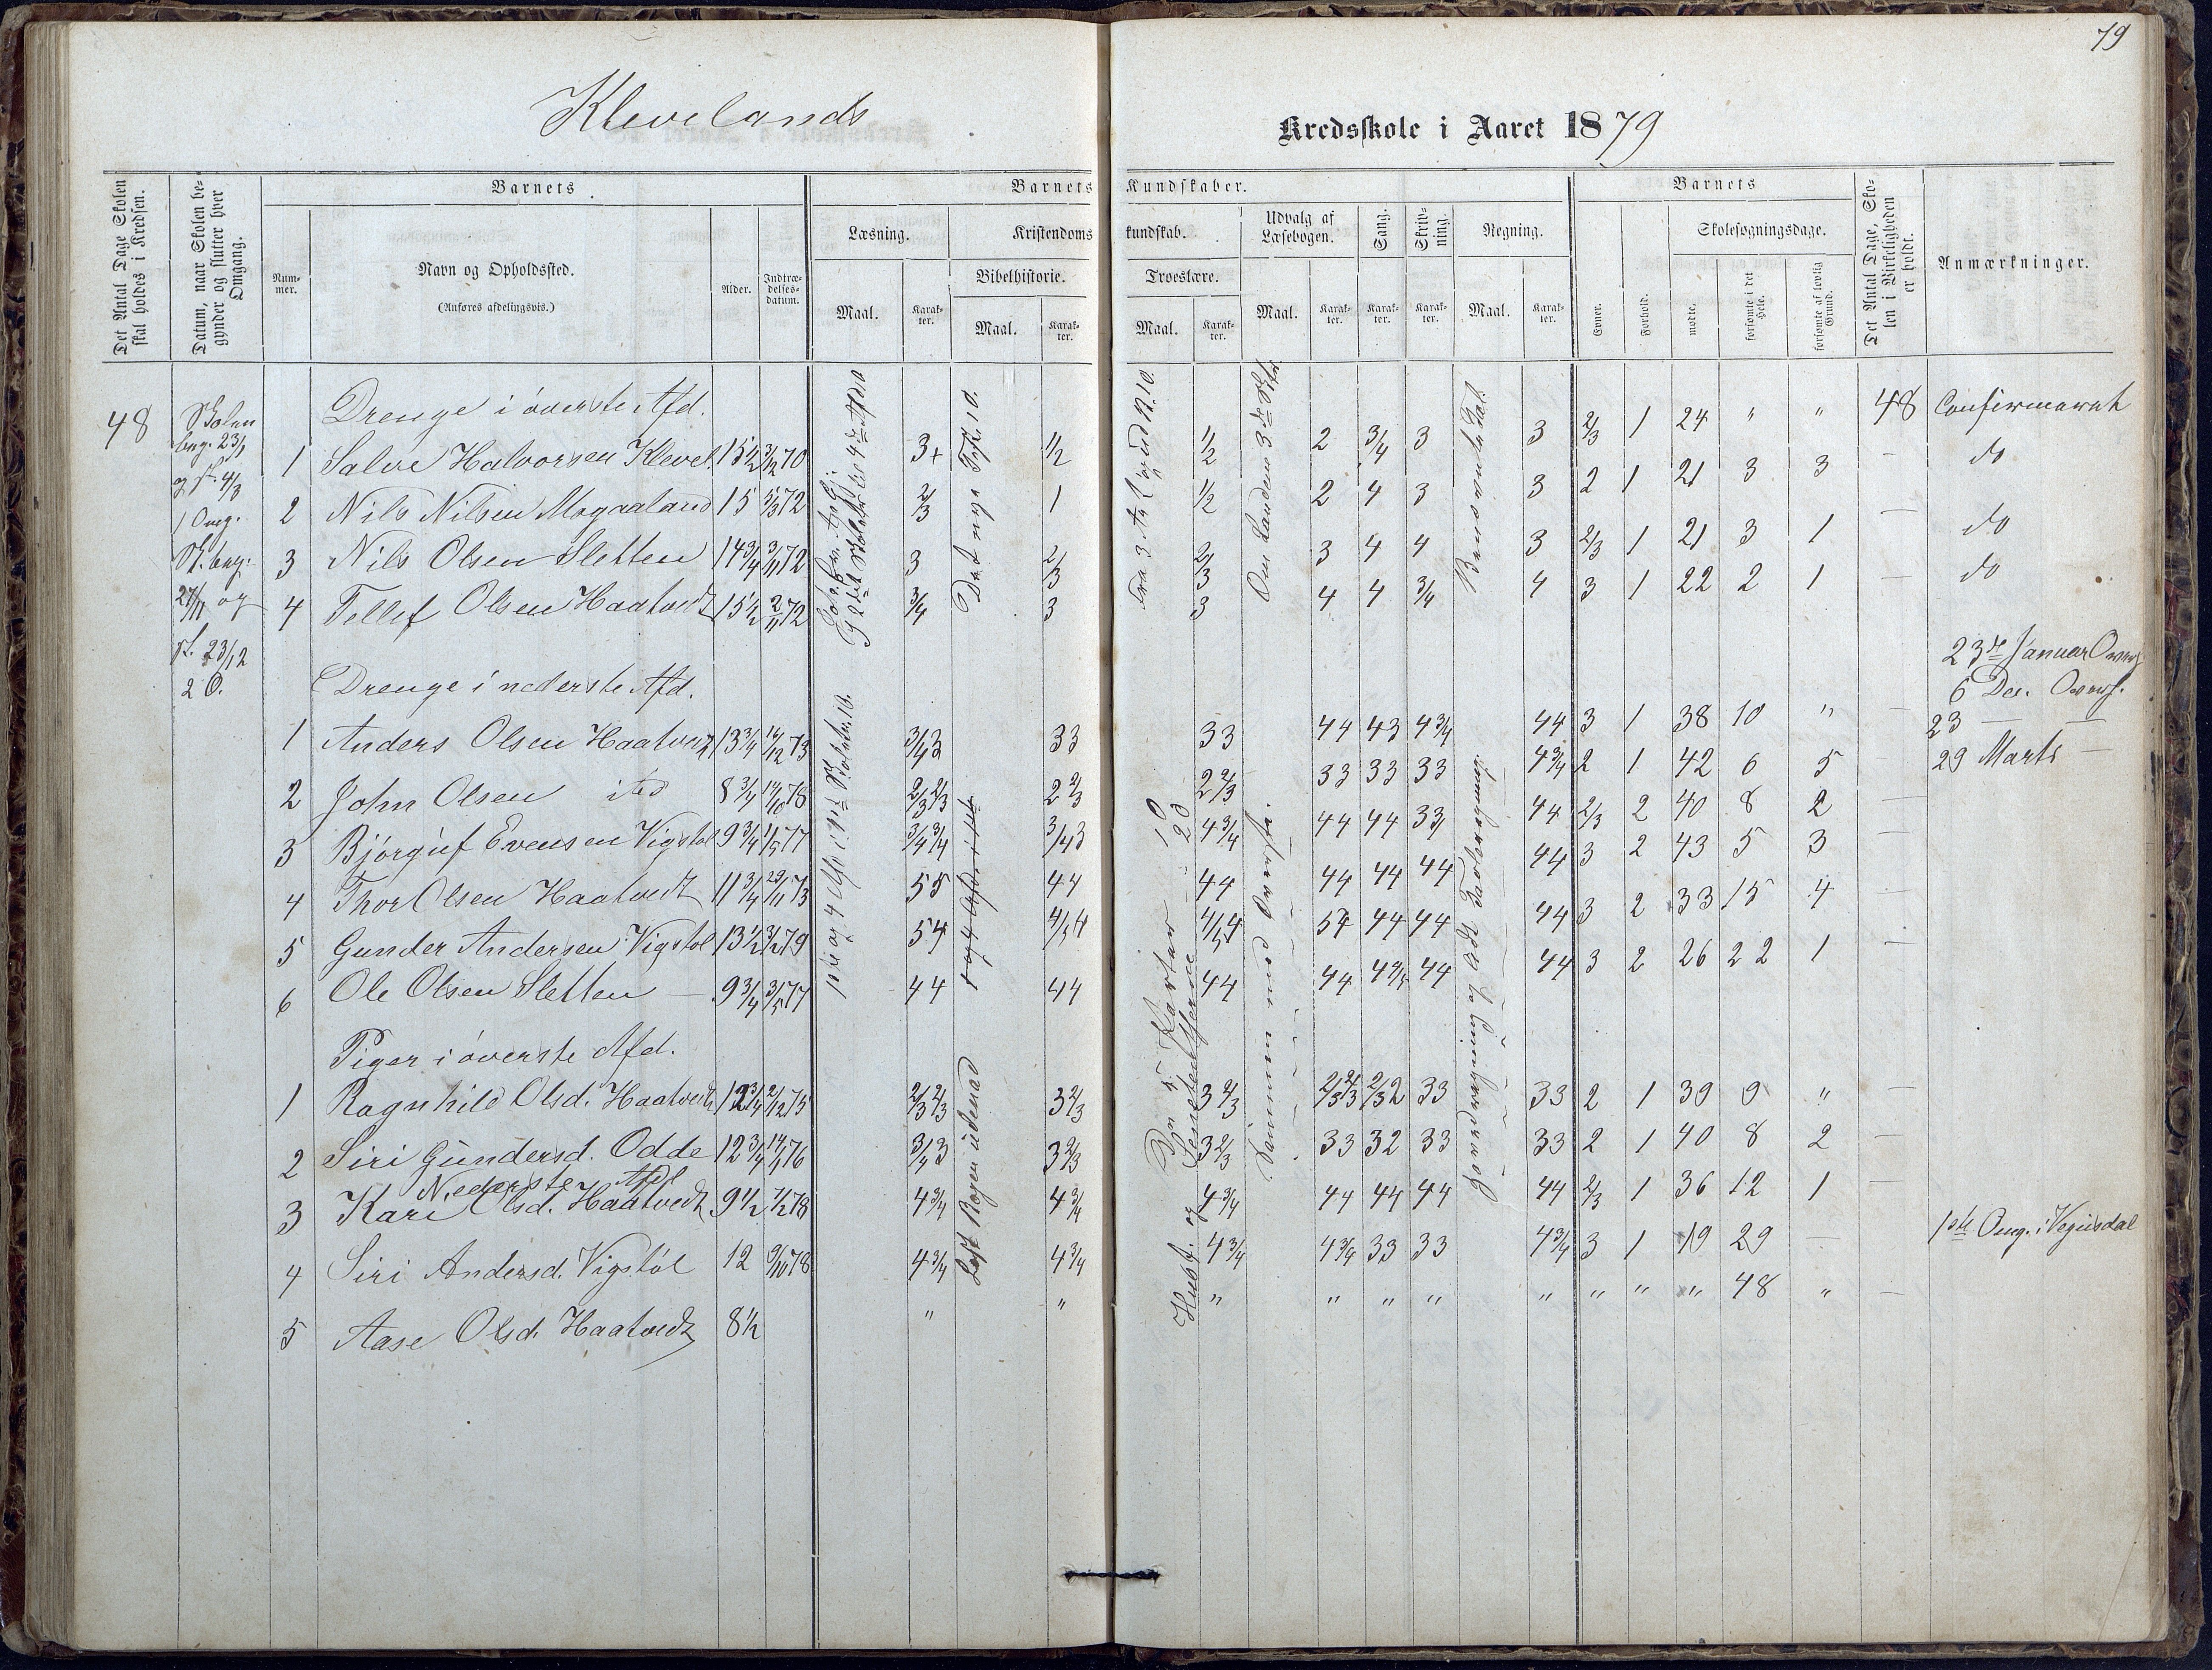 79
Klevelands
Kredsskole i Aaret 1879
Det Antal Dage Skolen skal holdes i Kredsen.
Datum, naar Skolen begynder og slutter hver Omgang.
Barnets
Nummer.
Navn og Opholdssted.
(Anføres afdelingsvis.)
Alder.
Indtrædelsesdatum.
Barnets Kundskaber.
Læsning.
Maal.
Karakter.
Kristendomskundskab.
Bibelhistorie.
Maal.
Karakter.
Troeslære.
Maal.
Karakter.
Udvalg af Læsebogen.
Maal.
Karakter.
Sang.
Karakter.
Skrivning.
Karakter.
Regning.
Maal.
Karakter.
Barnets
Evner.
Forhold.
Skolesøgningsdage.
mødte.
forsømte i det Hele.
forsømte af lovlig Grund.
Det Antal Dage, Skolen i Virkeligheden er holdt.
Anmærkninger.
48
Skolen
beg. 23/1
og sl. 4/3
1 Omg.
Sk. beg.
27/11 og
sl. 23/12
2 O.
Drenge i øverste Afd.
1 Salve Halvorsen Klevel. 15½ 3/12 70 3+ ½ ½ 2 3/4 3 3 2/3 1 24 " " 48 Confirmeret
2 Nils Nilsen Mograaland 15 5/3 72 2/3 1 ½ 2 4 3 3 2 1 21 3 3 — do
3 Nils Olsen Sletten 14¾ 3/11 72 3 2/3 2/3 3 4 4 3 2/3 1 21 3 1 — do
4 Tellef Olsen Haatvedt 15½ 2/11 72 3/4 3 3 4 4 3/4 4 3 1 22 2 1 — do
Drenge i nederste Afd.
1 Anders Olsen Haatvedt 13¾ 14/12 73 3/4 3 33 33 44 43 4 3/4 44 3 1 38 10 " —
2 John Olsen ibd 8¾ 14/10 78 2/3 2/3 2 2/3 2 2/3 33 33 33 4 3/4 2 1 42 6 5
3 Bjørguf Evensen Vigstøl 9¾ 1/5 77 3/4 3/4 3/4 3 4 3/4 44 44 33 44 2/3 2 40 8 2 —
4 Thor Olsen Haatvedt 11¾ 29/11 73 55 44 44 44 44 44 44 3 2 43 5 3 —
5 Gunder Andersen Vigstøl 13½ 3/12 79 54 4/5 4 4/5 4 54 44 44 44 3 2 33 15 4 —
6 Ole Olsen Sletten — 9¾ 3/5 77 44 44 44 44 4 4/5 44 44 3 2 26 22 1 —
23de Januar Overf.
6 Dec. Overf.
23 — —
29 Marts —
Piger i øverste Afd.
1 Ragnhild Olsd. Haatvedt 12¾ 2/12 75 2/3 2/3 3 2/3 3 2/3 2/3 2/3 2/3 2 33 33 2 1 39 9 " —
2 Siri Gundersd. Odde 12¾ 14/1 76 3/4 3 3 2/3 3 2/3 33 32 33 33 2 1 40 8 2 —
Nederste Afd
3 Kari Olsd. Haatvedt 9½ 7/2 78 4 3/4 4 3/4 4 3/4 44 44 44 44 2/3 1 36 12 1 —
4 Siri Andersd. Vigstøl 12 9/10 78 4 3/4 4 3/4 4 3/4 4 3/4 33 33 4 3/4 3 1 19 29 — 1ste Omg. i Vegusdal
5 Aase Olsd. Haatvedt 8½ " " " " " " " " " " 48 " —
Det nye Test. 10.
Lest Bogen udenad
Om Landene 3die Stk.
Sammen med Overste.